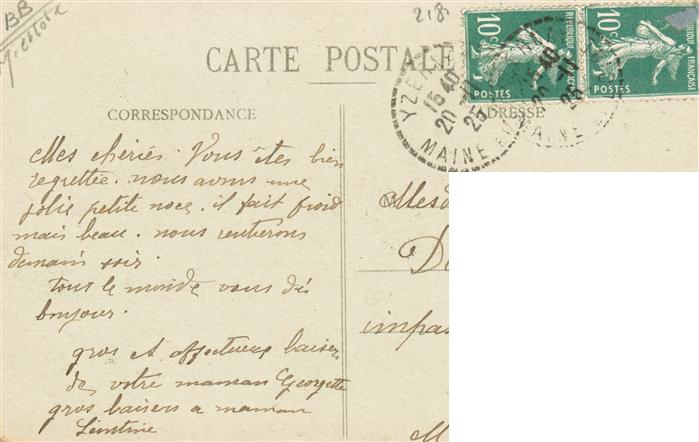 BB
218
CARTE POSTALE
10c 10c
RÉPUBLIQUE FRANÇAISE
POSTES POSTES
15 40
20
25
MAINE
CORRESPONDANCE
ADRESSE
Mes chéries. Vous êtes bien
regrettée. nous avons une
jolie petite noce. il fait froid
mais beau. nous rentierons
demain soir.
tous le monde vous dis
bonjour.
gros et affectueux baisers
de votre maman Georgette
gros baisers a maman
Léontine
Mesd
D
impas
M